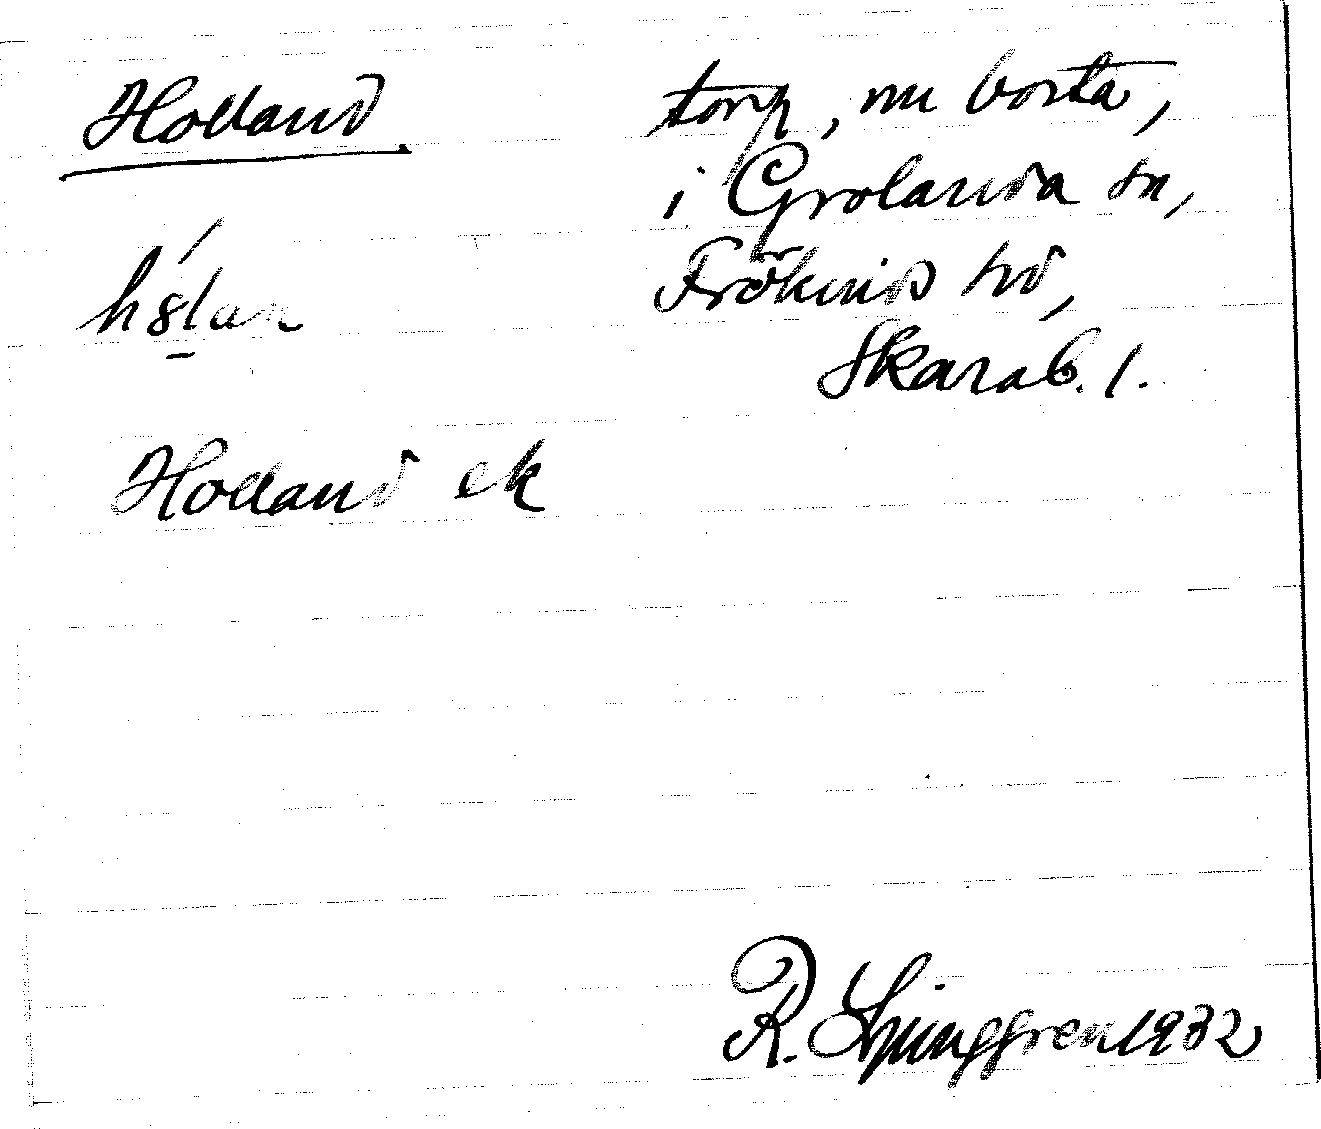 Holland
torp, nu borta,
i Grolanda sn,
Frökinds hd,
Skarab. l.
Holland ek
R. Ljunggren 1932